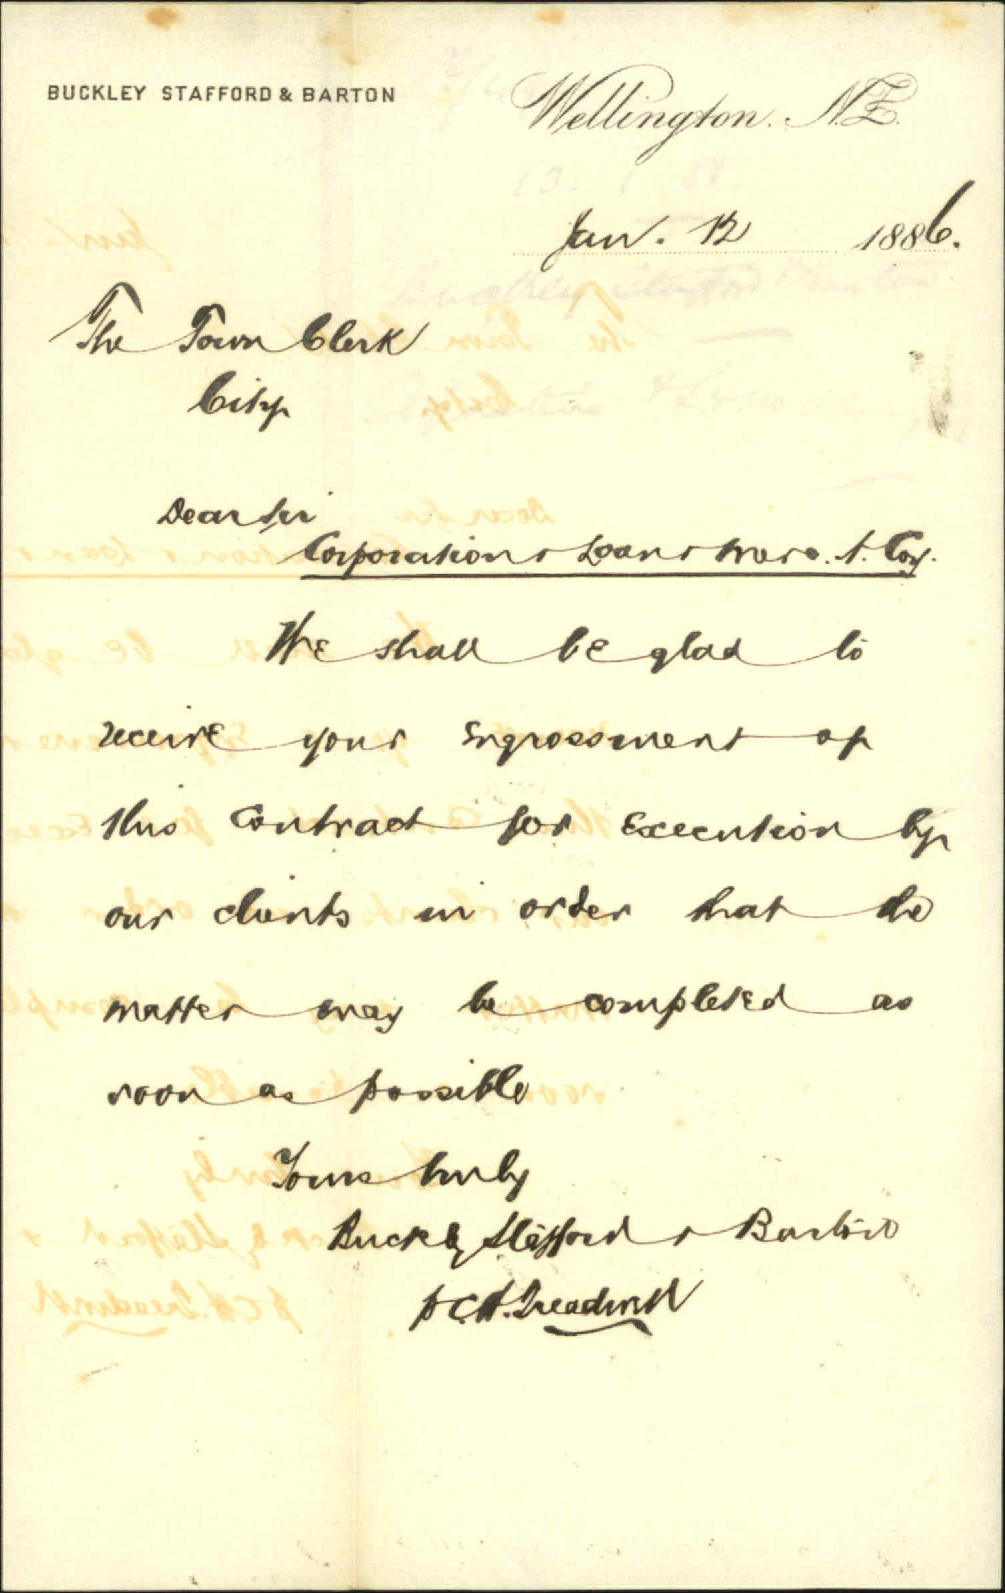 BUCKLEY STAFFORD & BARTON
Wellington. N.Z.
Jan. 12 1886.
The Town Clerk
City
Dear Sir
Corporation & Loan & Merc. A. Coy.
We shall be glad to
receive your Engrossment of
this Contract for Execution by
our clients in order that the
matter may be completed as
soon as possible
Yours truly
Buckley Stafford & Barton
p C.H. Treadwell